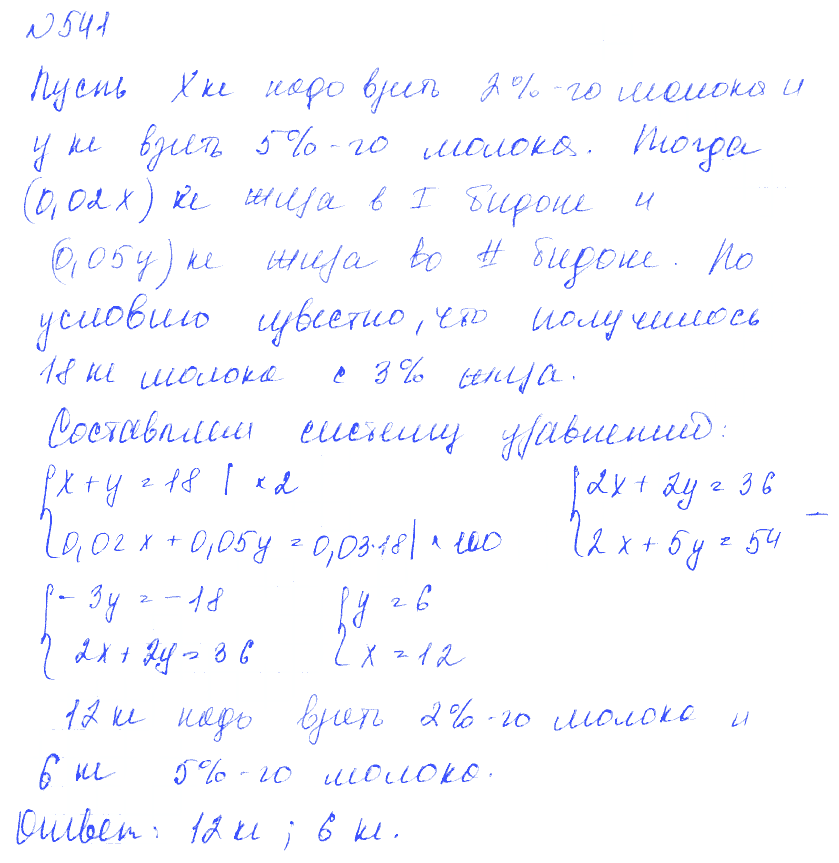 №541
Пусть x кг надо взять 2%-го молока и
y кг взять 5%-го молока. Тогда
(0,02x) кг жира в I бидоне и
(0,05y) кг жира во II бидоне. По
условию известно, что получилось
18 кг молока с 3% жира.
Составляем систему уравнений:
{x + y = 18 | × 2 {2x + 2y = 36
{0,02x + 0,05y = 0,03·18 | × 100 {2x + 5y = 54 –
{- 3y = -18 {y = 6
{2x + 2y = 36 {x = 12
12 кг надо взять 2%-го молока и
6 кг 5%-го молока.
Ответ: 12 кг; 6 кг.